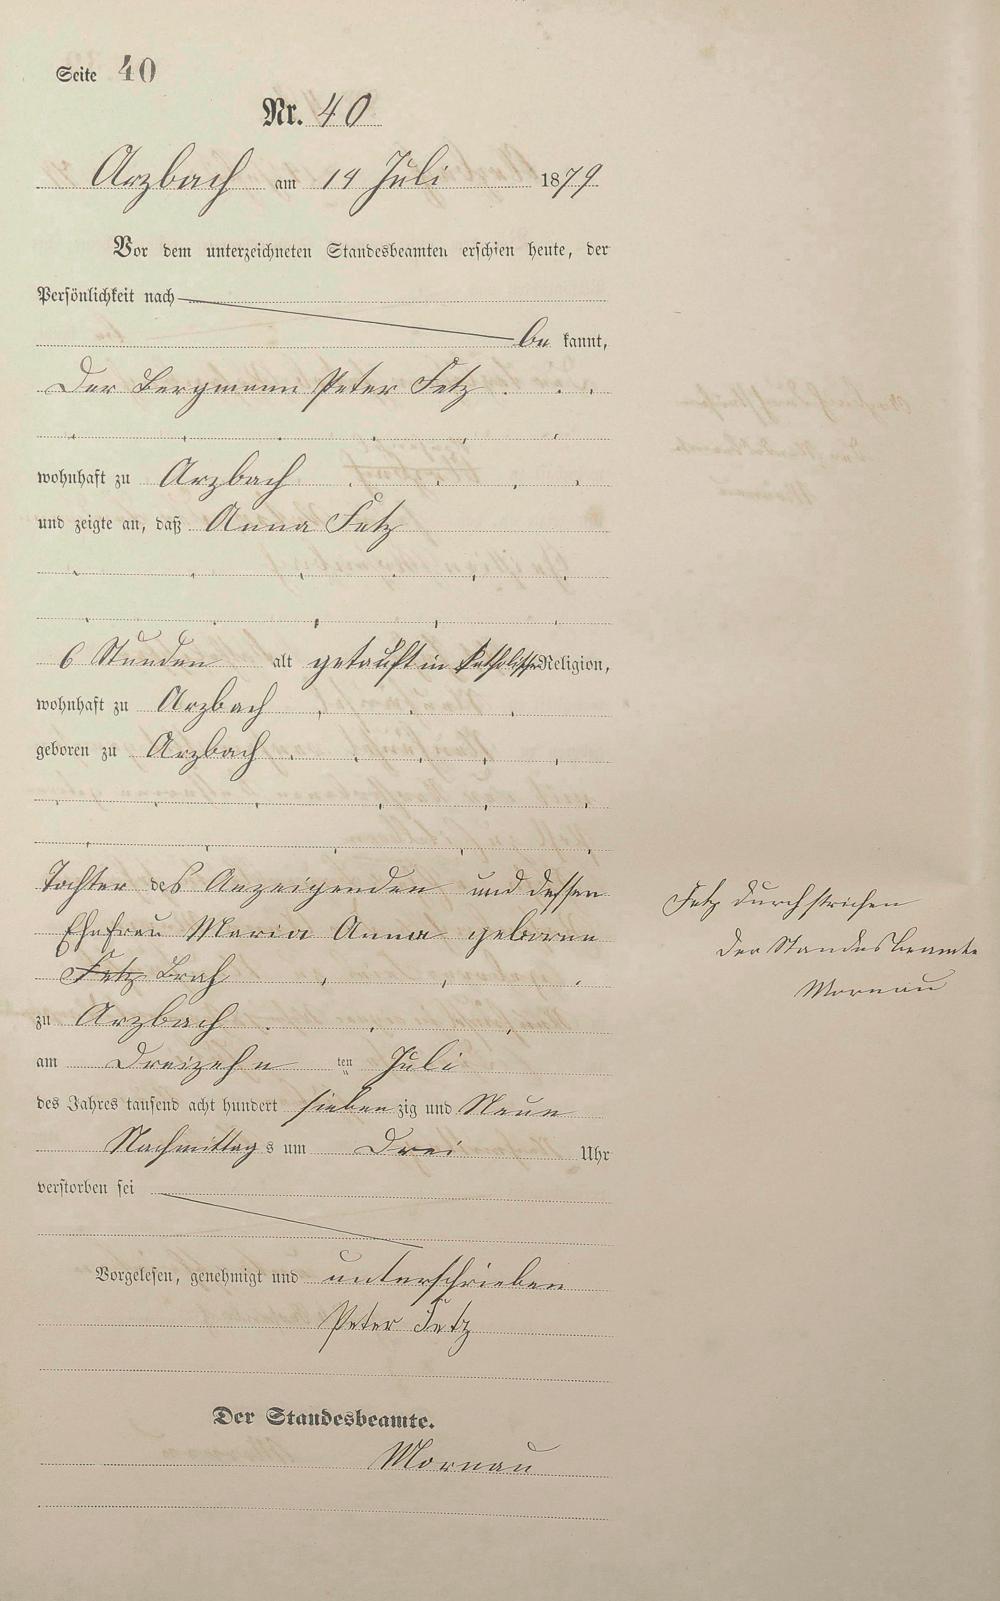 Seite 40
Nr. 40
Arzbach am 14 Juli 1879
Vor dem unterzeichneten Standesbeamten erschien heute, der
Persönlichkeit nach
be kannt,
Der Bergmann Peter Fetz
wohnhaft zu Arzbach
und zeigte an, daß Anna Fetz
6 Stunden alt getauft in katholische Religion,
wohnhaft zu Arzbach
geboren zu Arzbach
Tochter des Anzeigenden und dessen
Ehefrau Maria Anna geborne
Fetz Brah
zu Arzbach
am Dreizehn ten Juli
des Jahres tausend acht hundert sieben zig und Neun
Nachmittag s um Drei Uhr
verstorben sei
Vorgelesen, genehmigt und unterschrieben
Peter Fetz
Der Standesbeamte.
Mornau
Fetz durchstrichen
Der Standesbeamte
Mornau